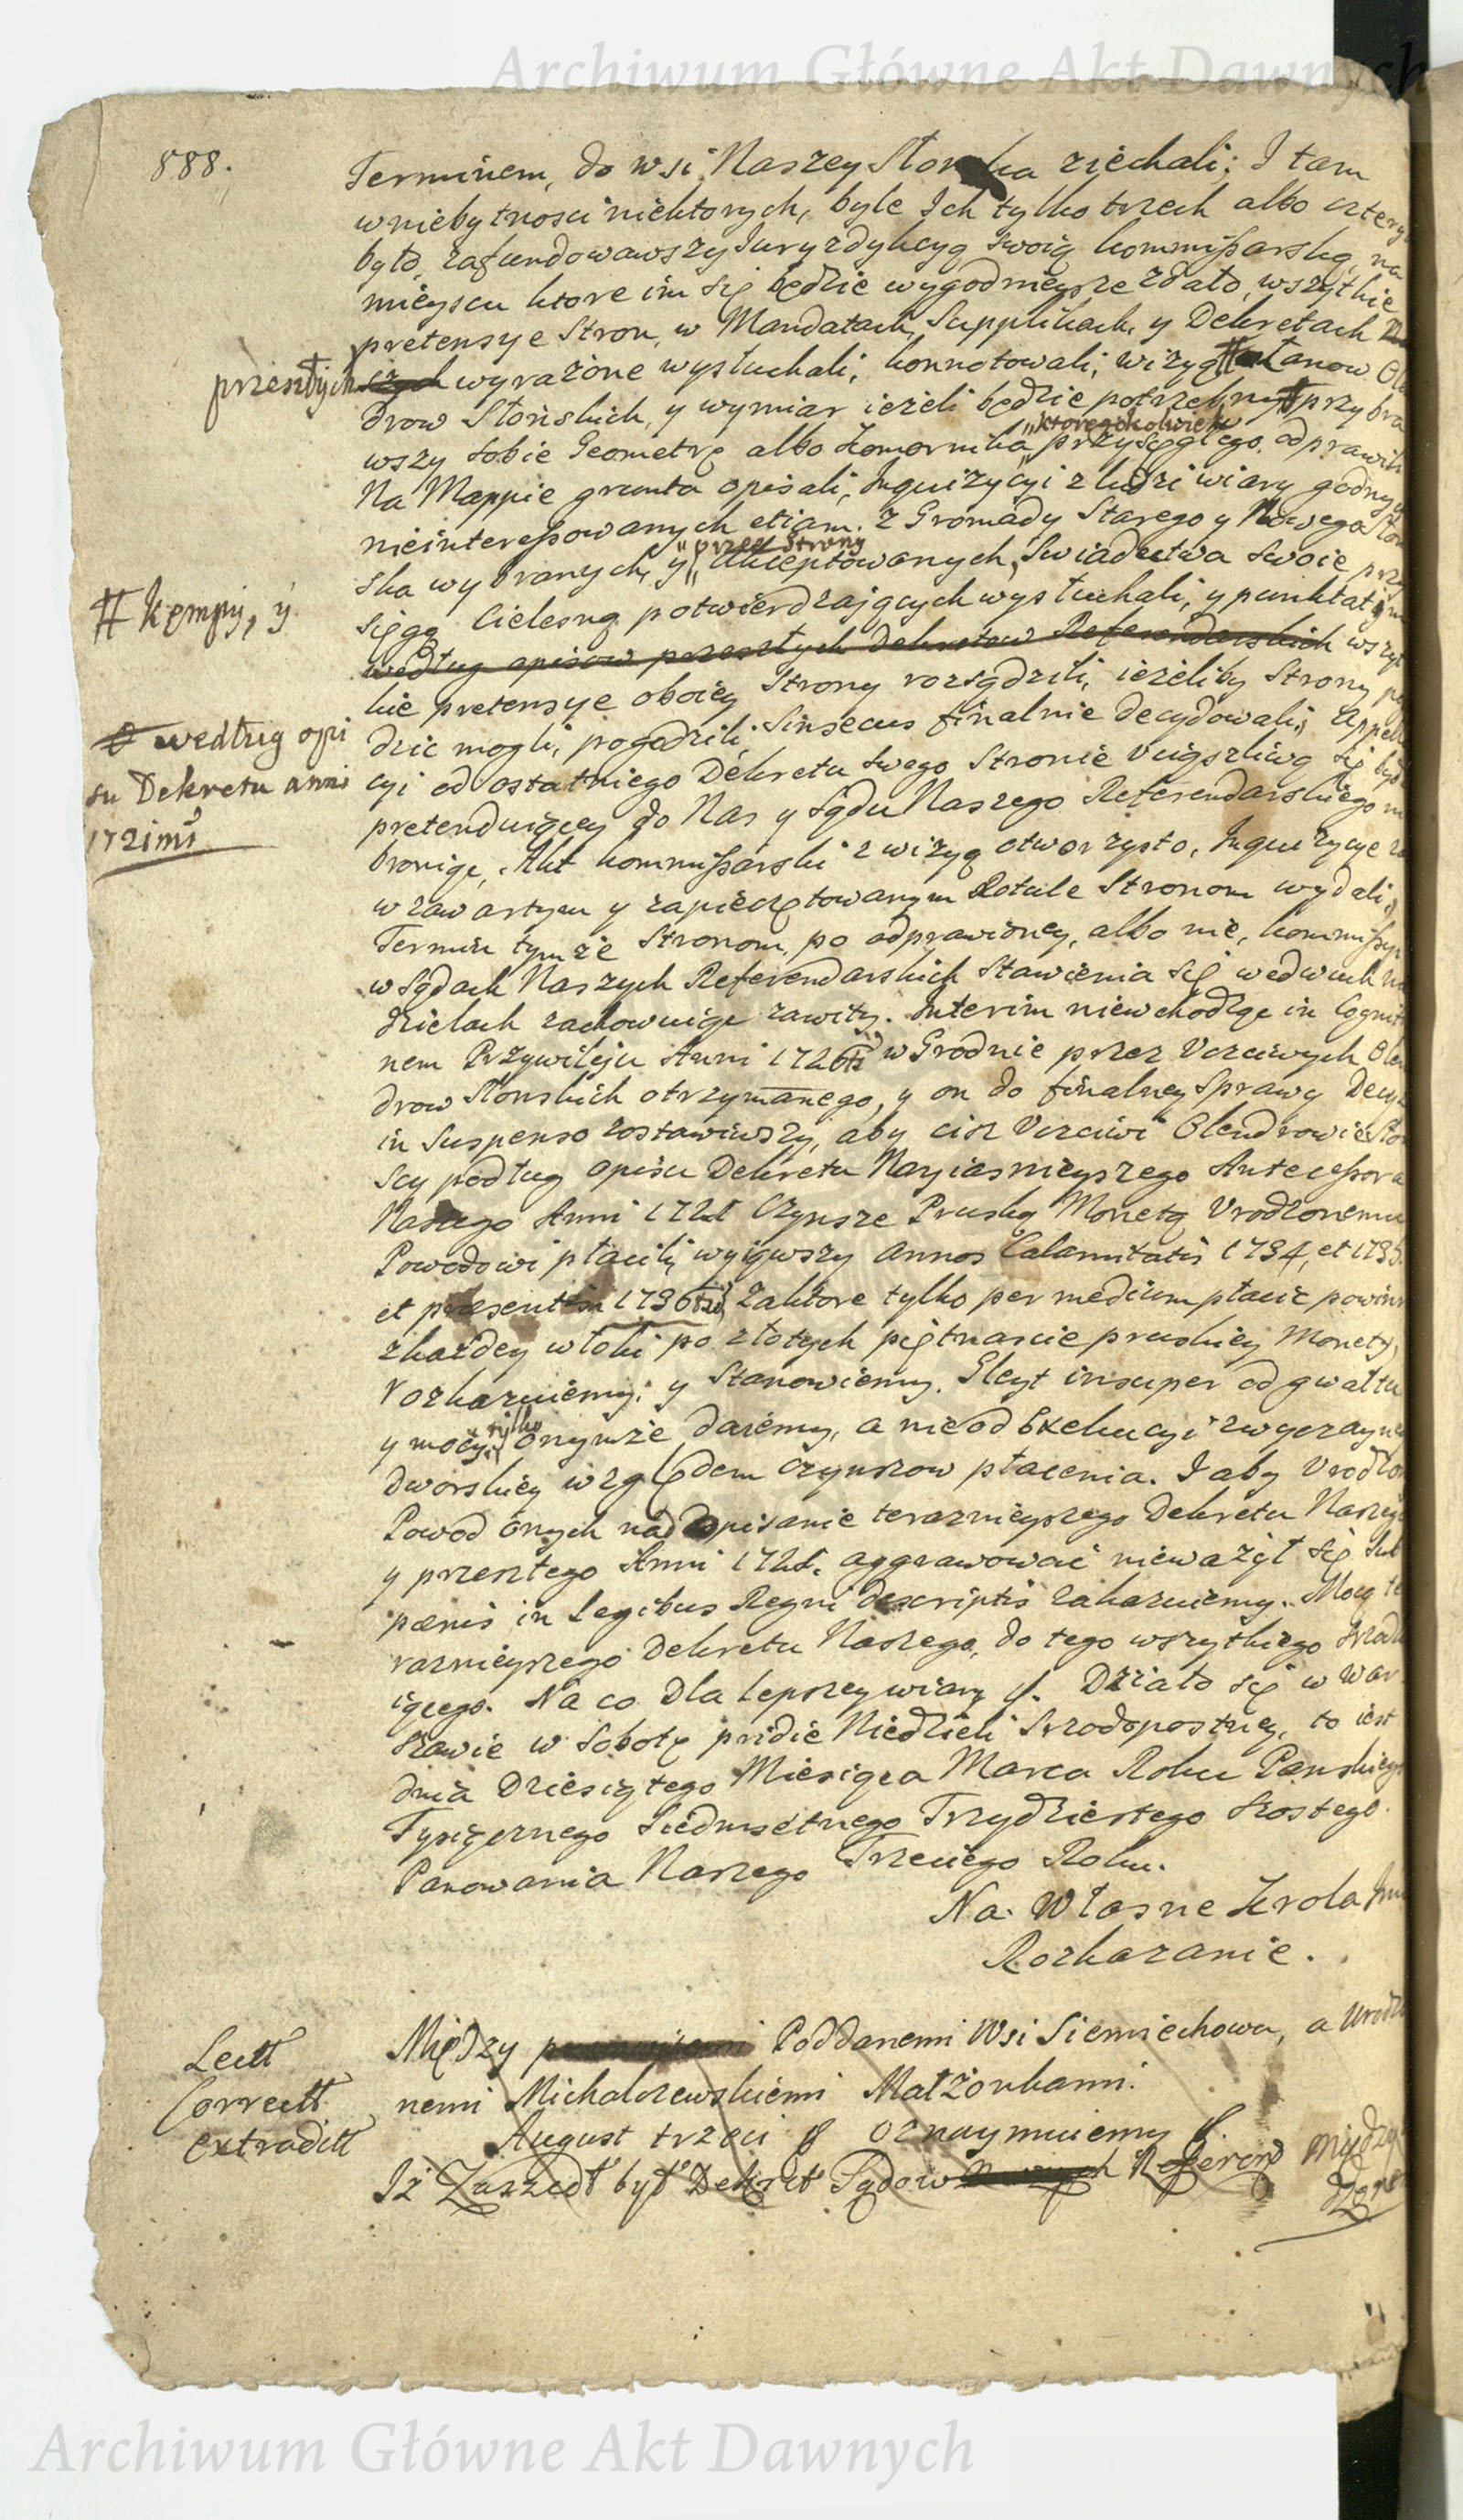 Archiwum Główne Akt Dawnych
888.
Terminem, do wsi Naszey Słonska ziechali; I tam
w niebytnosci niektorych, byle Ich tylko trzech albo cztery
było, zafundowawszy Iuryzdykcyą swoią kommißarską, na
mieyscu ktore im się będzie wygodnieysze zdało, wszytkie
pretensye Stron, w Mandatach, Supplikach, y Dekretach
przeszłych wyrażone wysłuchali, konnotowali, wizyą # Łanow Ole
drow Słońskich, y wymiar ieżeli będzie potrzebny przybra
wszy sobie Geometrę albo Komornika „ktoregokolwiek przysięgłego odprawili
Na Mappie grunta opisali, Inquizycyi z ludzi wiary godnych
nieintereßowanych etiam z Gromady Starego y Nowego Słon
ska wybranych, y „przez Strony Akceptowanych, Swiadectwa swoie przy
# Kempy, y
sięgą Cielesną potwierdzaiących wysłuchali, y punktatim
według opisow przeszłych Dekretow Referendarskich wszyt
kie pretensye oboiey Strony rozsądzili, ieżeliby Strony po
według opi
su Dekretu anni
1721mi
dzic mogli, pogodzili, Sinsecus finalnie decydowali, Appella
cyi od ostatniego Dekretu swego Stronie uciążliwą się bydz
pretenduiącey do Nas y Sądu Naszego Referendarskiego nie
bronigc, Akt kommißarski z wizyą otworzysto, Inquizycye za
w zawartym y zapieczętowanym Rotule Stronom wydali,
Termin tymże Stronom, po odprawioney, albo nie, kommißyi
w Sądach Naszych Referendarskich stawienia się we dwuch nie
dzielach zachowuiąc zawity. Interim niewchodząc in Cognitio
nem Przywileju Anni 1726ti w Grodnie przez Uczciwych Olen
drow Słonskich otrzymanego, y on do finalney Sprawy Decyzyi
in Suspenso zostawiwszy, aby ciż Uczciwi Olendrowie Słon
scy podług opisu Dekretu Nayiasnieyszego Anteceßora
Naszego Anni 1721 Czynsze Pruską Monetą Urodzonemu
Powodowi płacili, wyiąwszy annos Calamitatis 1734, et 1735.
et præsentem 1736tum, Zaktore tylko per medium płacic powinni
z każdey włoki po złotych piętnascie pruskiey Monety,
rozkazuiemy; y Stanowiemy. Gleyt insuper od gwałtu
y mocy „tylko onymże daiemy, a nie od Exekucyi zwyczayney
dworskiey względem czynszow płacenia. I aby Urodzony
Powod onych nad opisanie teraznieyszego Dekretu Naszego
y przeszłego Anni 1721. aggrawować nieważył się sub
pænis in Legibus Regni descriptis zakazuiemy. Mocą te
raznieyszego Dekretu Naszego, do tego wszytkiego srzodku
iącego. Na co dla lepszey wiary &. Działo się w War
szawie w Sobotę pridie Niedzieli Srzodopostney, to iest
dnia Dziesiątego Miesiąca Marca Roku Panskiego
Tysiącznego Siedmsetnego Trzydziestego Szostego.
Panowania Naszego Trzeciego Roku.
Na Własne Krola Jmci
Rozkazanie.
Lectt
Correctt
extraditt
Między Poddanemi Wsi Siemiechowa, a Urodzo
nemi Michalczewskiemi Małżonkami.
August trzeci & oznaymuiemy &
Iż Zaszedł był Dekret Sądow Referend między
Archiwum Główne Akt Dawnych